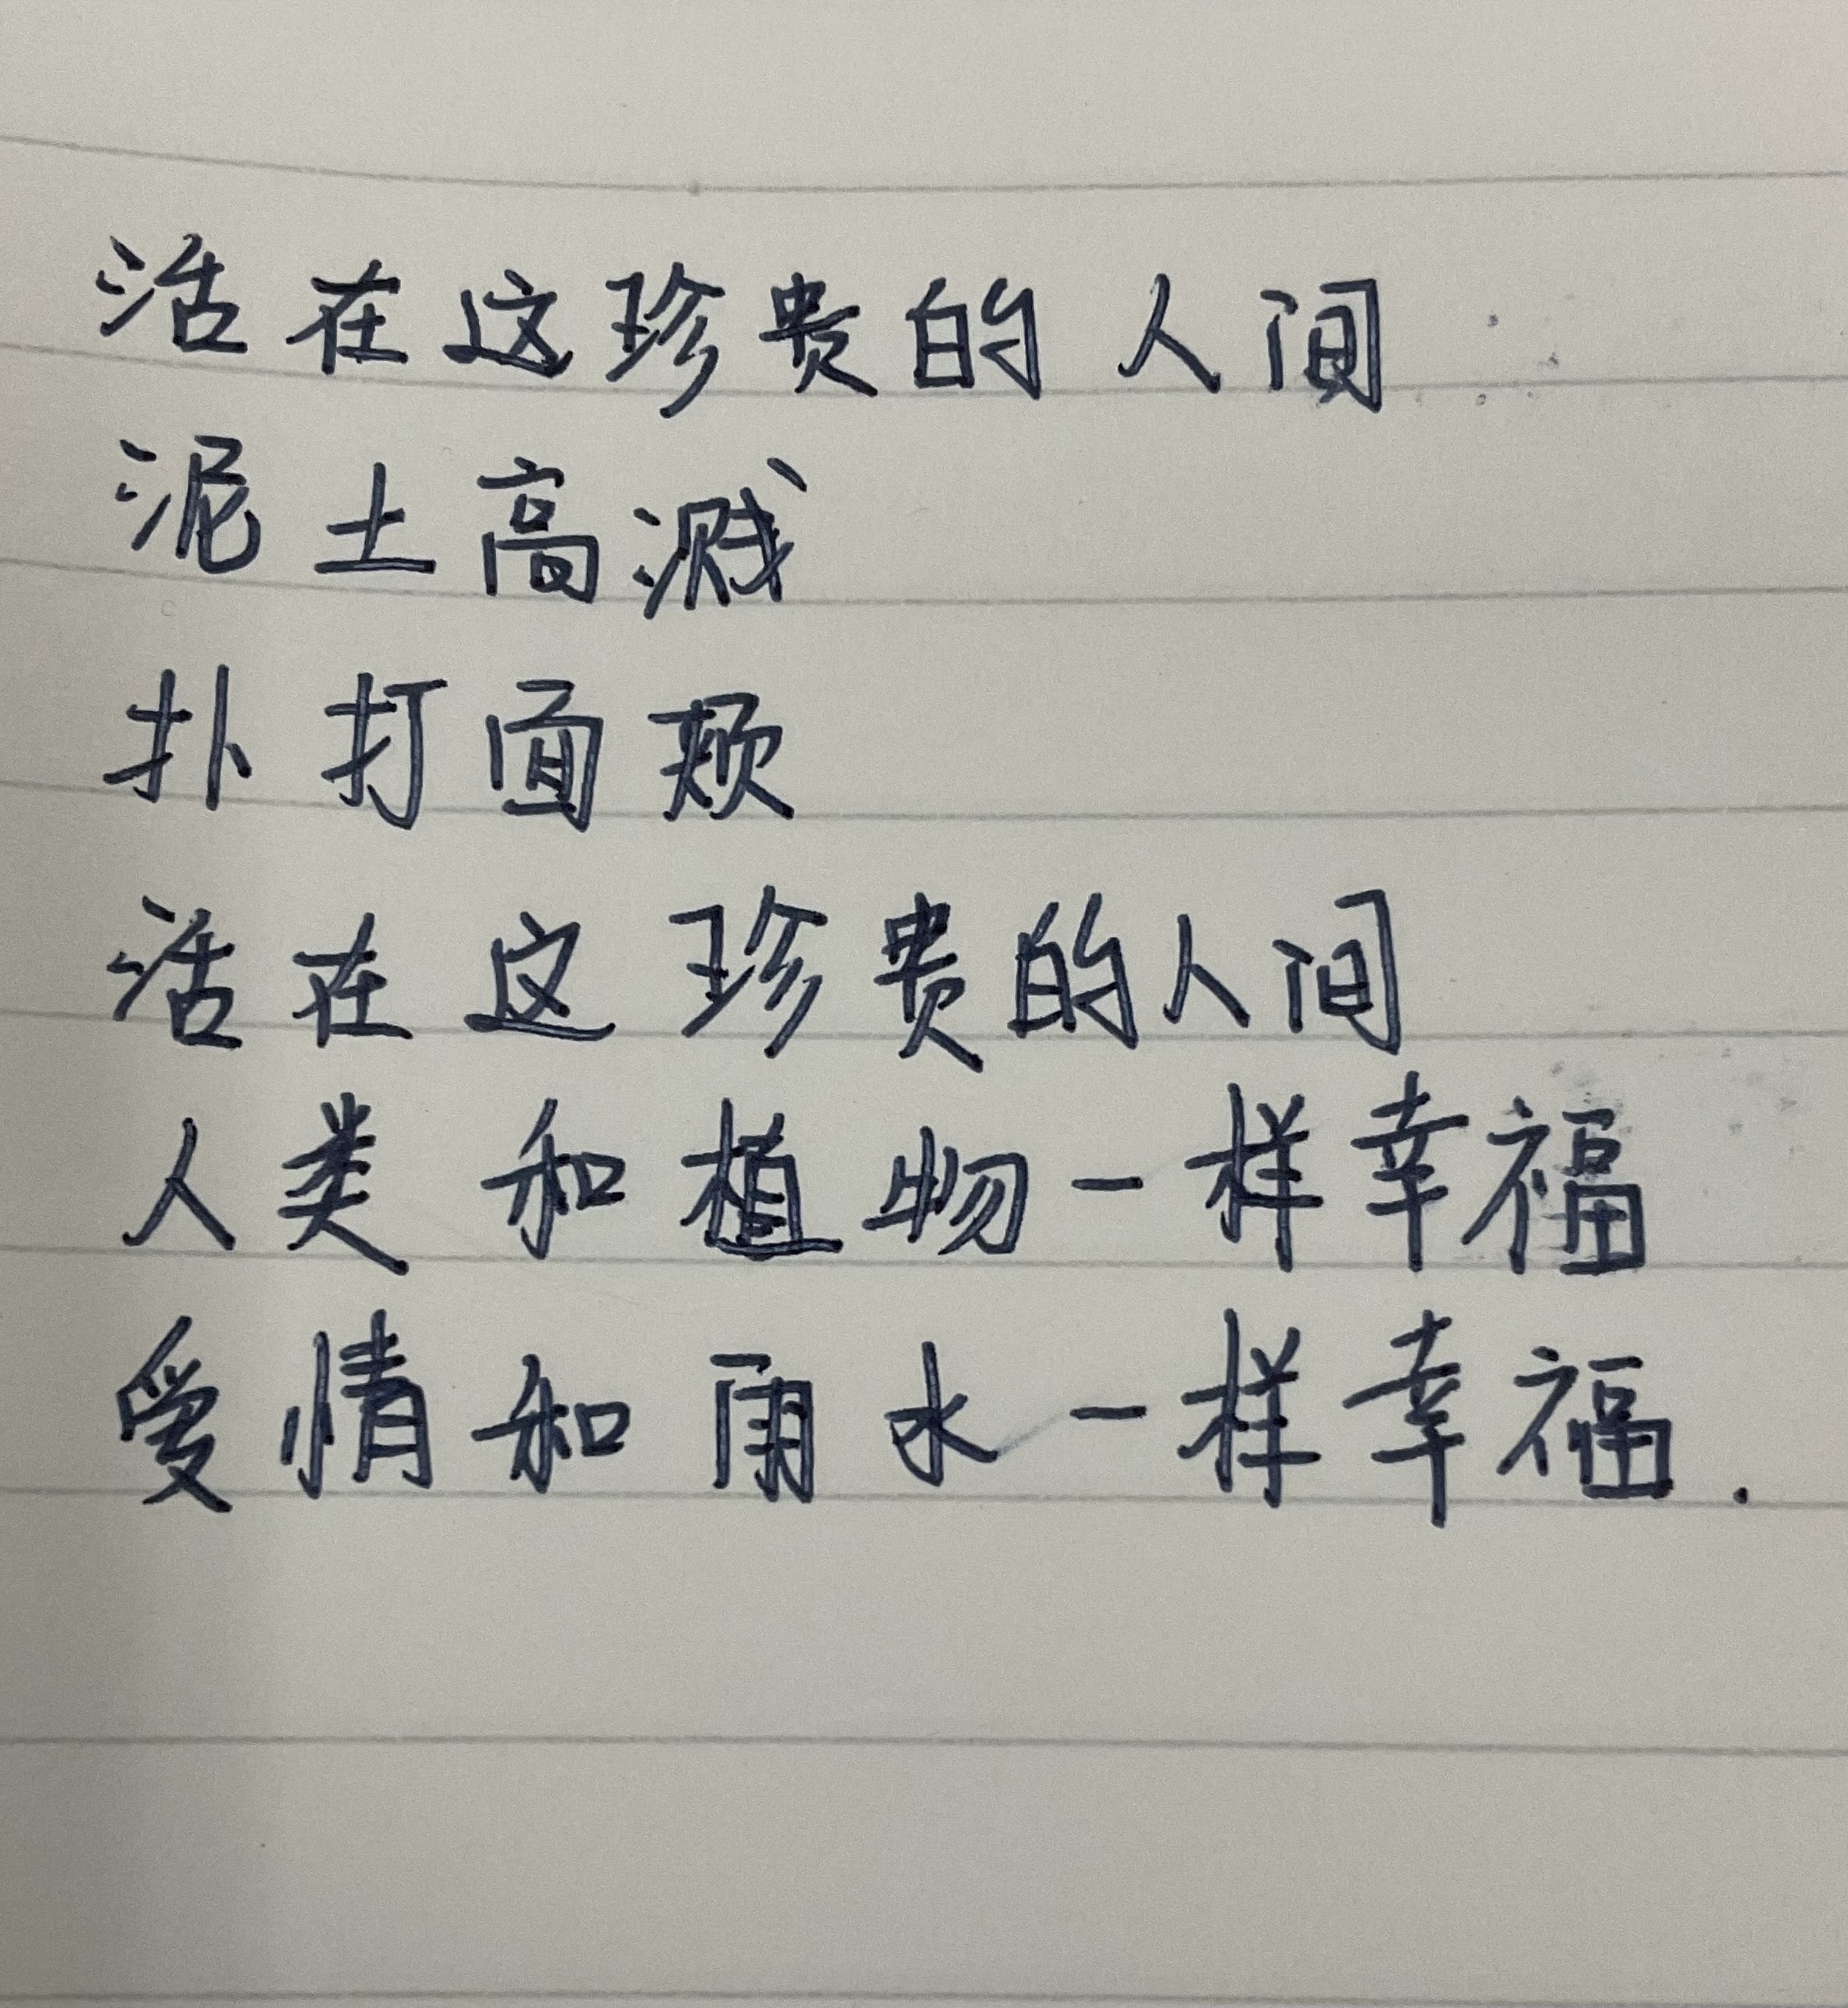 活在这珍贵的人间
泥土高溅
扑打面颊
活在这珍贵的人间
人类和植物一样幸福
爱情和雨水一样幸福.